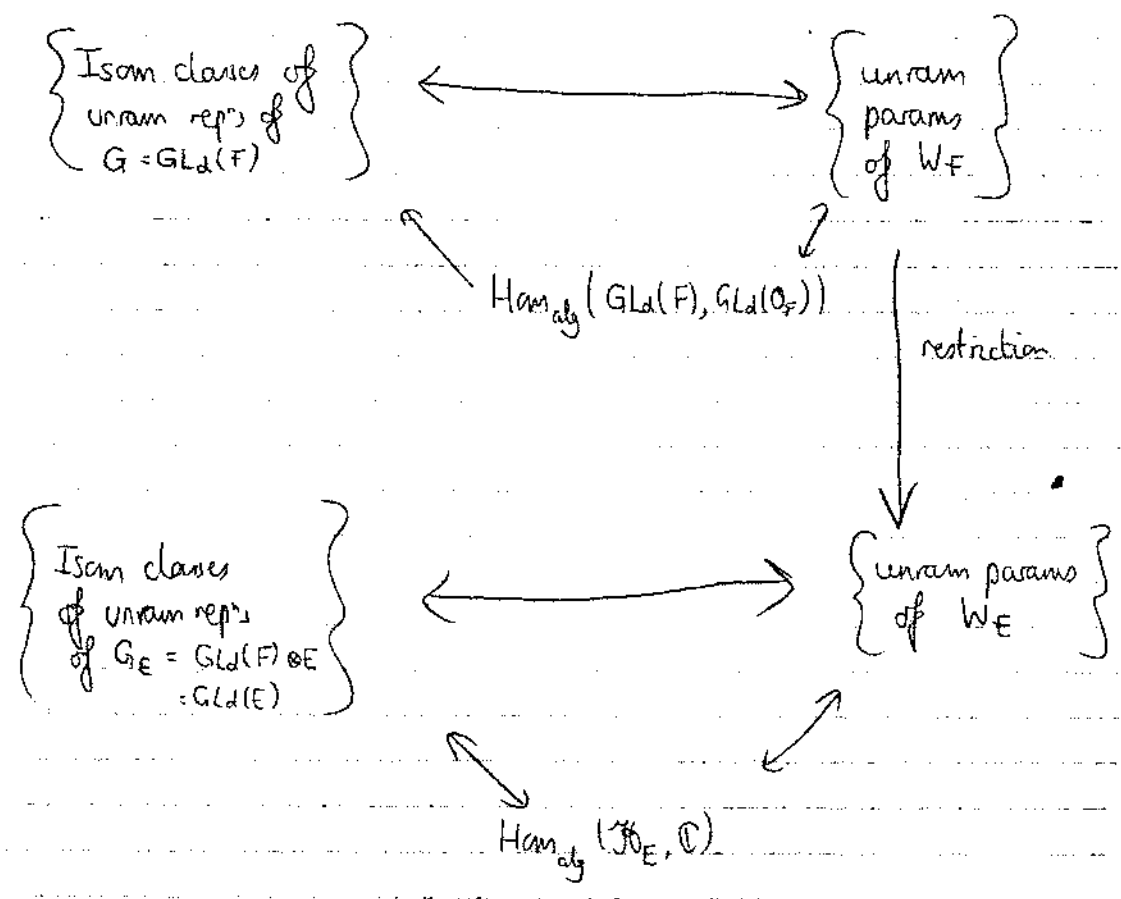 Isom classes of
unram repⁿs of
G = GLd(F)
unram
params
of WF
Hom alg (GLd(F), GLd(OF))
restriction
Isom classes
of unram repⁿs
of GE = GLd(F)⊗E
= GLd(E)
unram params
of WE
Hom alg (ℋE, ℂ)